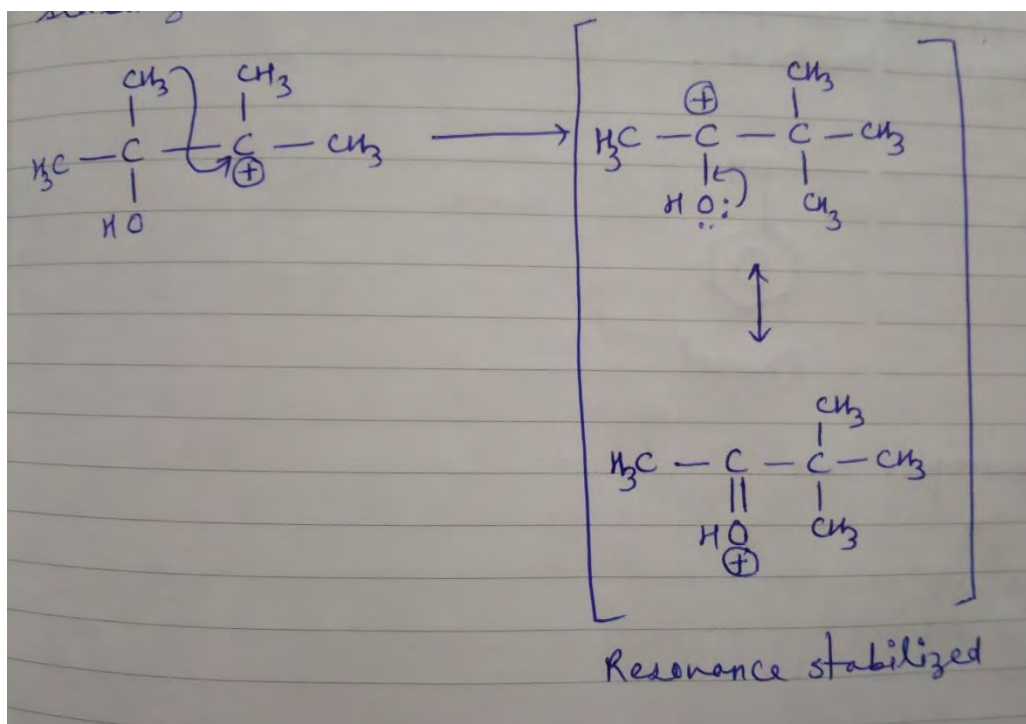 CH3 CH3
H3C — C — C — CH3
⊕
HO
CH3
⊕
H3C — C — C — CH3
HO: CH3
CH3
H3C — C — C — CH3
HO CH3
⊕
Resonance stabilized